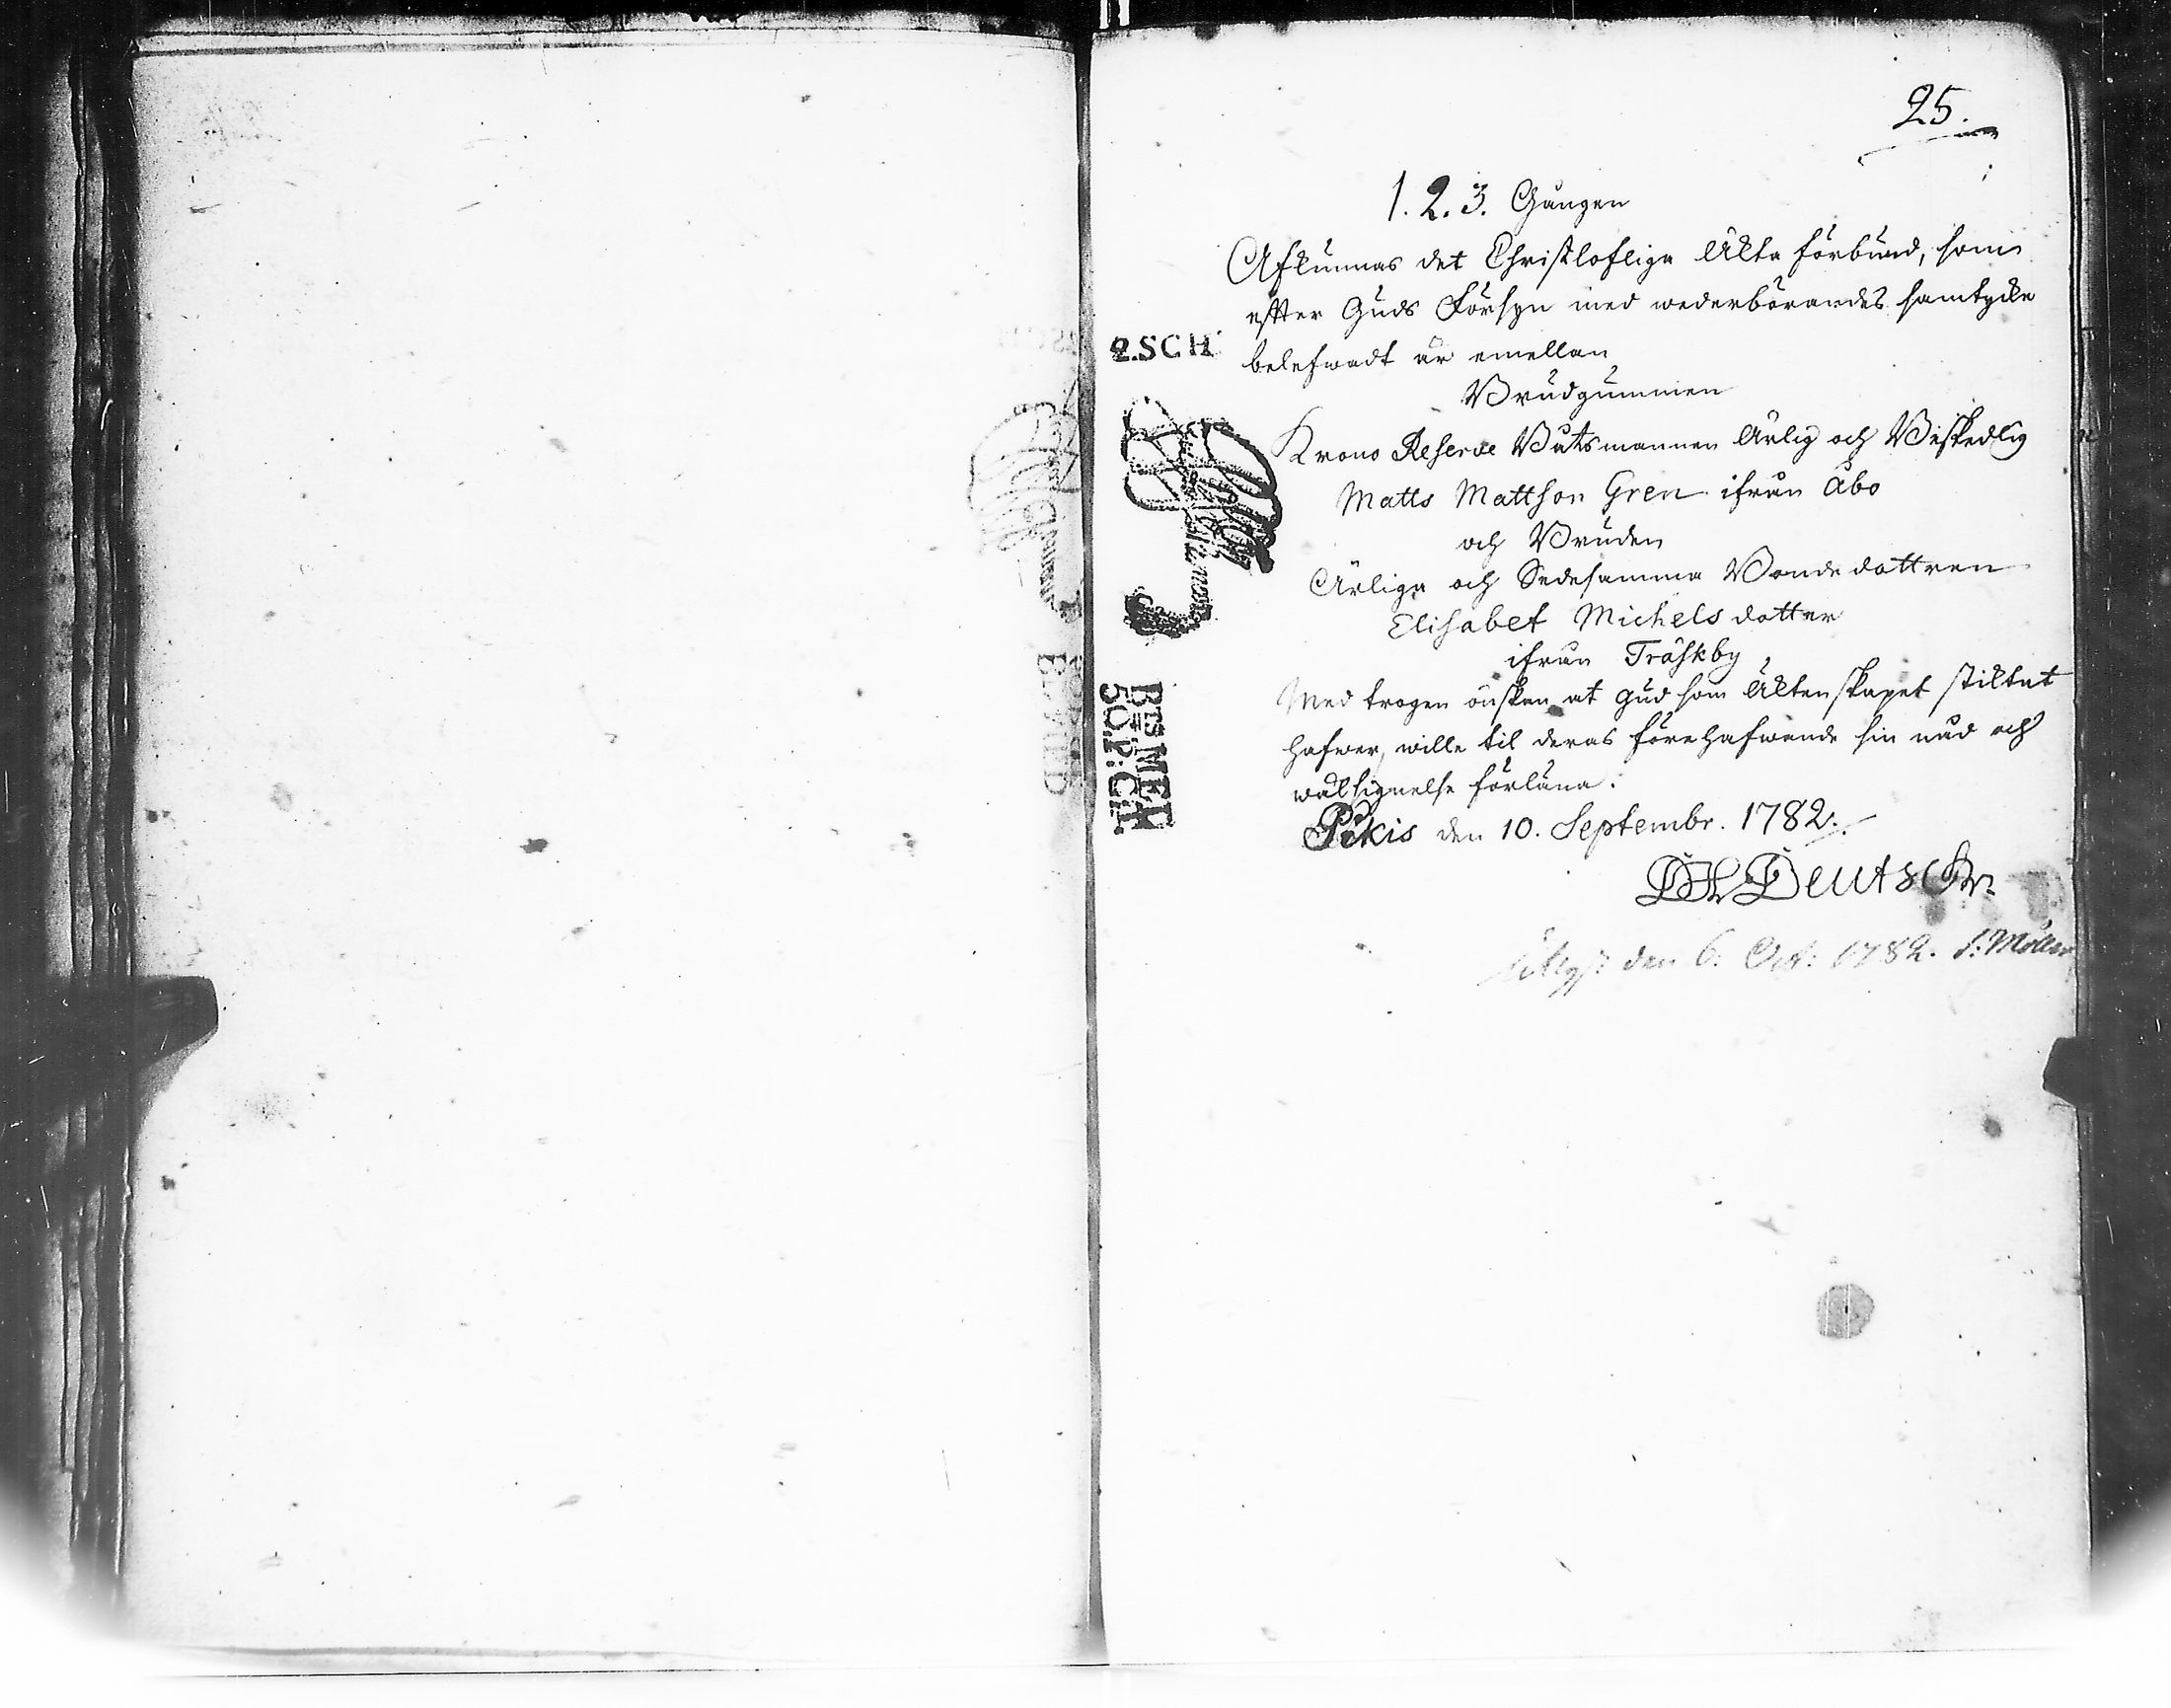 25.
1. 2. 3. Gången
Aflunnas det Christlofliga Äkta förbund, som
efter Guds Försyn med wederbörandes samtycke
belefwadt är emellan
2.SCH
Brudgummen
Krono Reserve Båtsmannen Ärlig och Beskedlig
Matts Mattson Gren ifrån Åbo
och Bruden
Ärliga och Sedesamma Bonde dottren
Elisabet Michels dotter
ifrån Träskby
Med trogen önskan at Gud som Äktenskapet stiktat
hafwer, wille til deras förehafwande sin nåd och
wälsignelse förläna.
BTS MEH
50.P:CT.
Pikis den 10. Septembr. 1782.
Deutsch
den 6. Oct: 1782. Möller